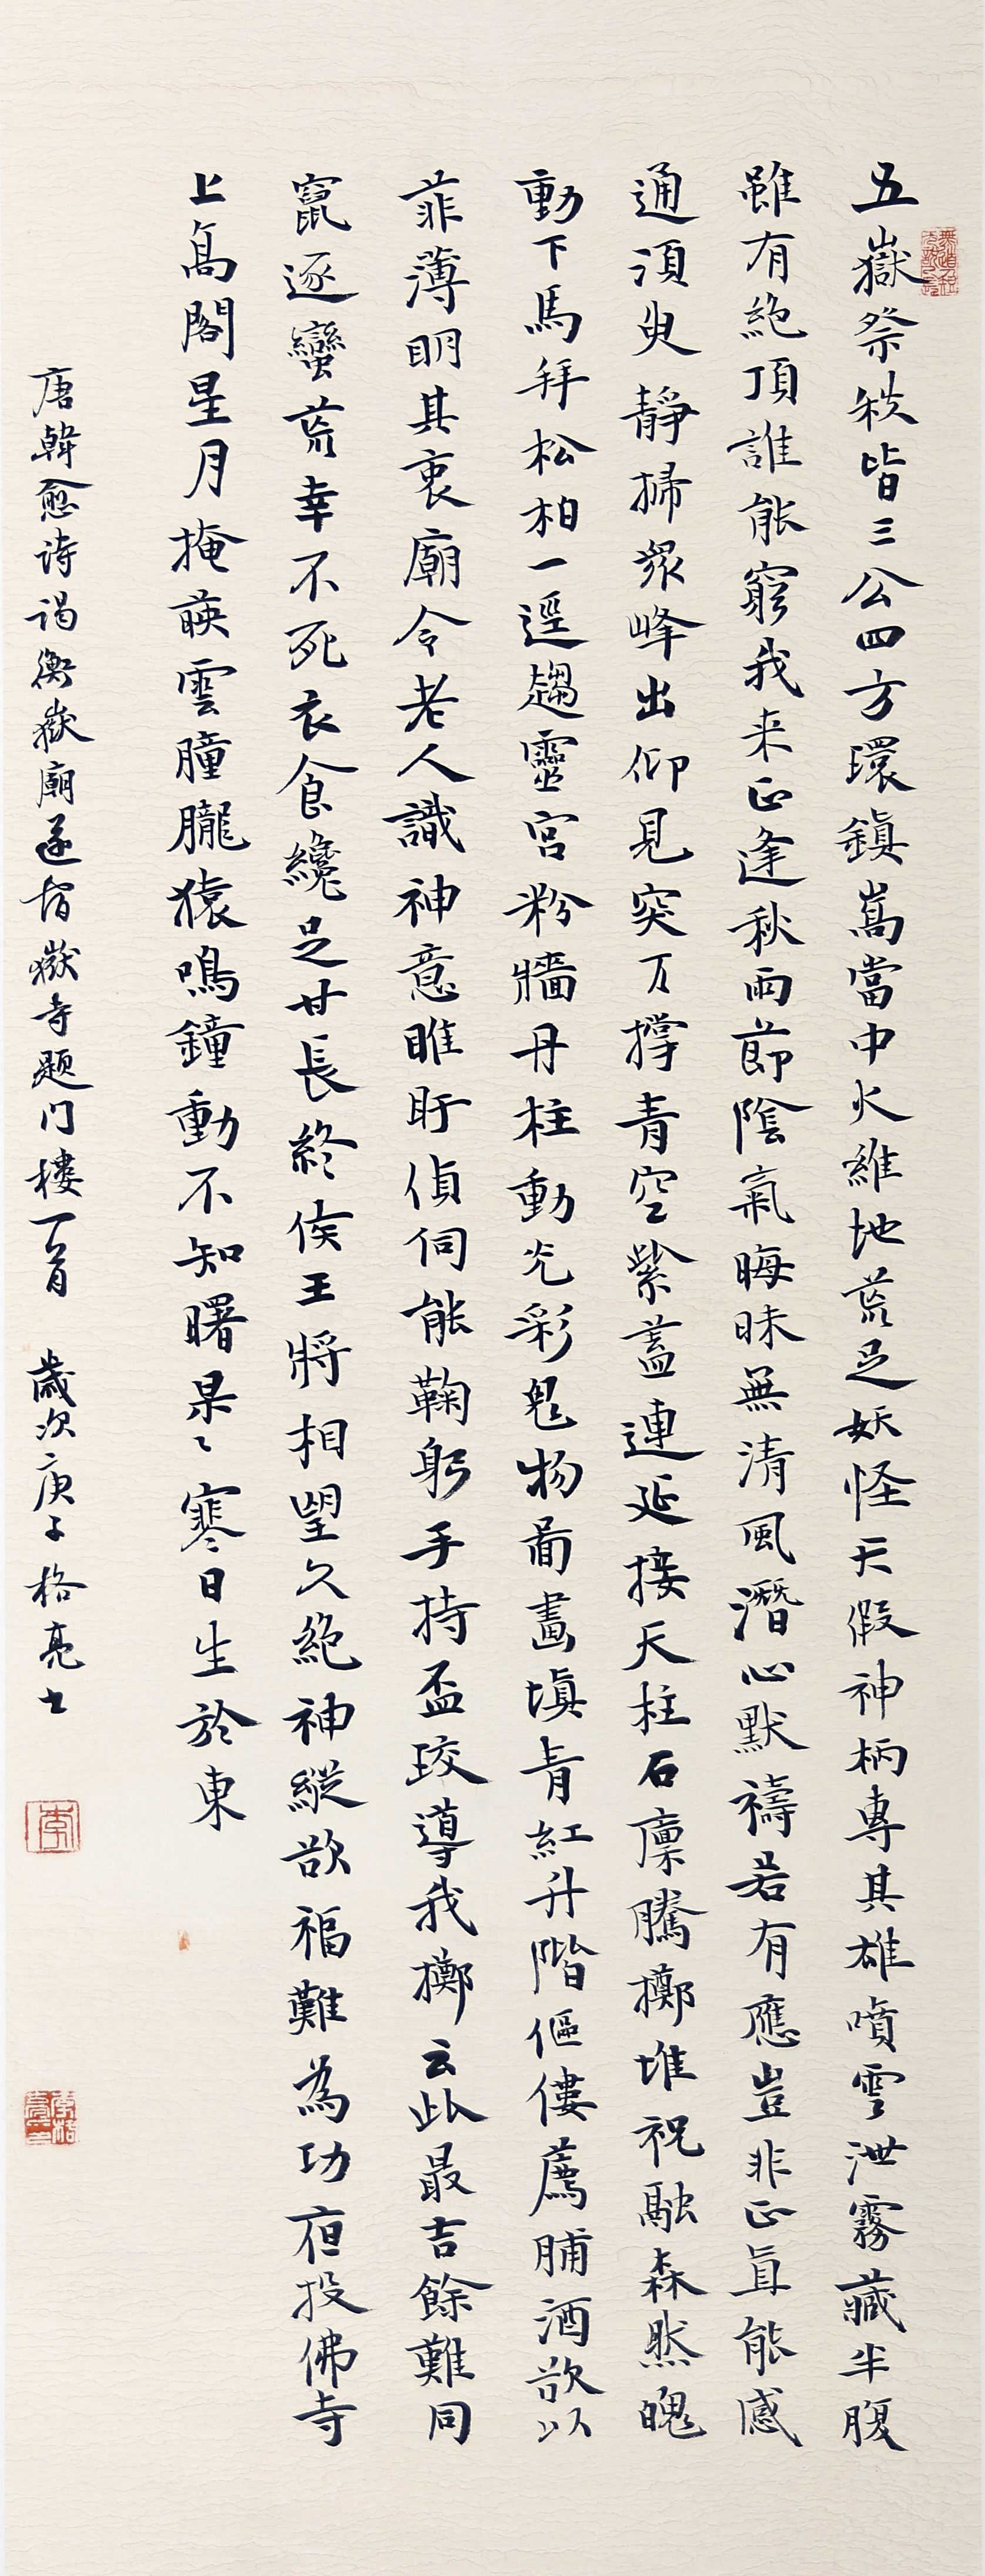 五嶽祭秩皆三公四方環鎮嵩當中火維地荒足妖怪天假神柄專其雄噴雲泄霧藏半腹
雖有絶頂誰能窮我来正逢秋雨節陰氣晦昧無清風潛心默禱若有應豈非正直能感
通須臾靜掃衆峰出仰見突兀撐青空紫蓋連延接天柱石廩騰擲堆祝融森然魄
動下馬拜松柏一逕趨靈宮粉牆丹柱動光彩鬼物圖畫塡青紅升階傴僂薦脯酒欲以
菲薄明其衷廟令老人識神意睢盱偵伺能鞠躬手持盃珓導我擲云此最吉餘難同
竄逐蠻荒幸不死衣食纔足甘長終侯王將相望久絶神縱欲福難為功夜投佛寺
上高閣星月掩映雲朣朧猿鳴鐘動不知曙杲〻寒日生於東
唐韓愈诗谒衡嶽廟遂宿嶽寺题门樓一首 歲次庚子 格亮书
李